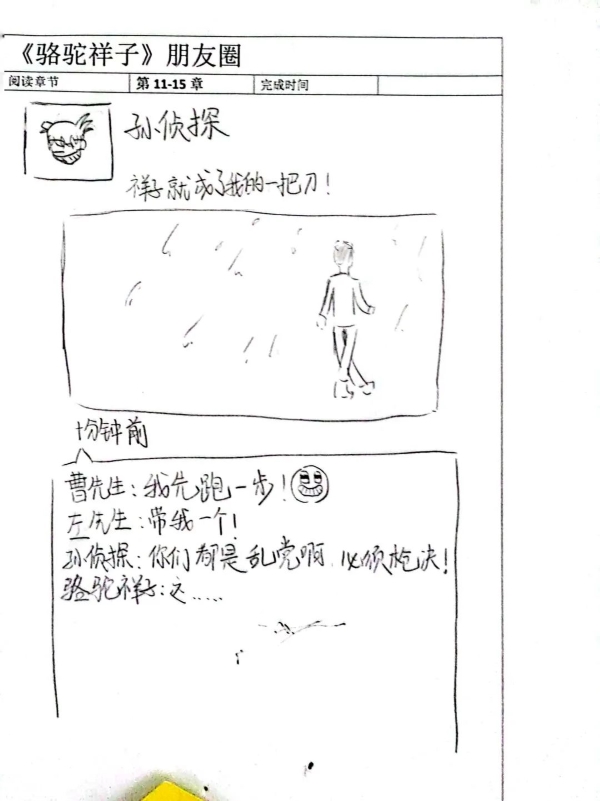 《骆驼祥子》朋友圈
阅读章节 第 11-15 章 完成时间
孙侦探
祥子就成了我的一把刀!
十分钟前
曹先生:我先跑一步!
左先生:带我一个!
孙侦探:你们都是乱党啊,必须枪决!
骆驼祥子:这......